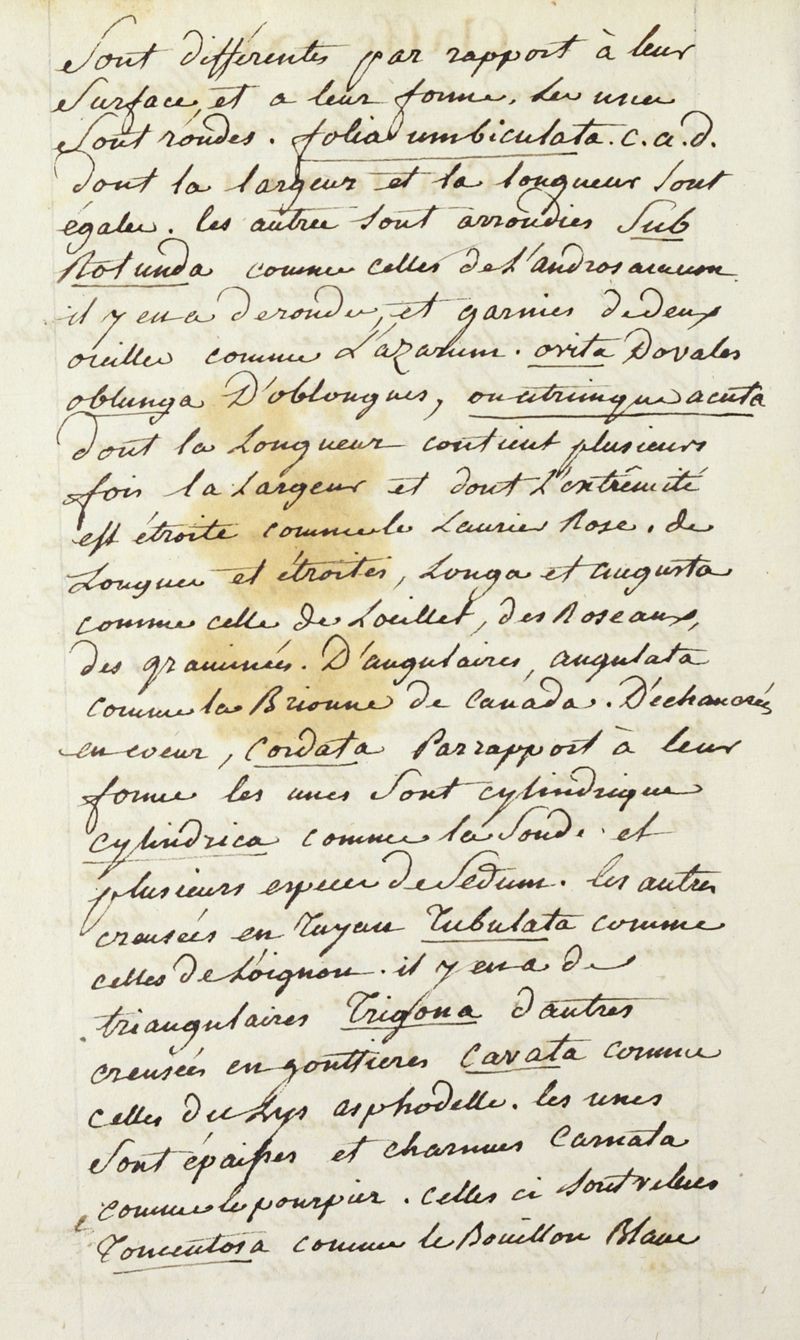 Sont différentes par rapport à leur
Surface, et a leur forme. Les unes
Sont róndes. folia umbiculata. c. a. d.
dont la largeur et la longueur sont
égales. les autres sont arrondies Sub
Rotunda comme celles de L'androsaemum
il y en a de rondes, et garnies de deux
oreilles comme L'azarum. ovita Dovales
oblunga D'oblongues, ou utrimque acuta
dont la Longueur contient plusieurs
fois la Largeur et dont L'extrêmité
est étroite comme le Laurier Rose. de
Longues et étroites, Longa et augusta
comme celle de Loeillet, des Roseaux,
des graminées. D'angulaires, angulata
comme la Brionne de Canáda. D'échancrées
en coeur, Cordata Par rapport à leur
forme les unes sont cylindrique
Cylindrica comme la Soude et
plusieurs especes de Sedum. les autres
creusées en Tuyau Tubulata comme
celles de L'oignon. il y en a de
triangulaires Trigona d'autres
creusées en gouttieres Cavata comme
celles du Lys asphodelle. les unes
Sont épaisses et charnues Carnata
comme le pourpier. Celles ci sont velues
Tomentosa comme le Bouillon Blanc